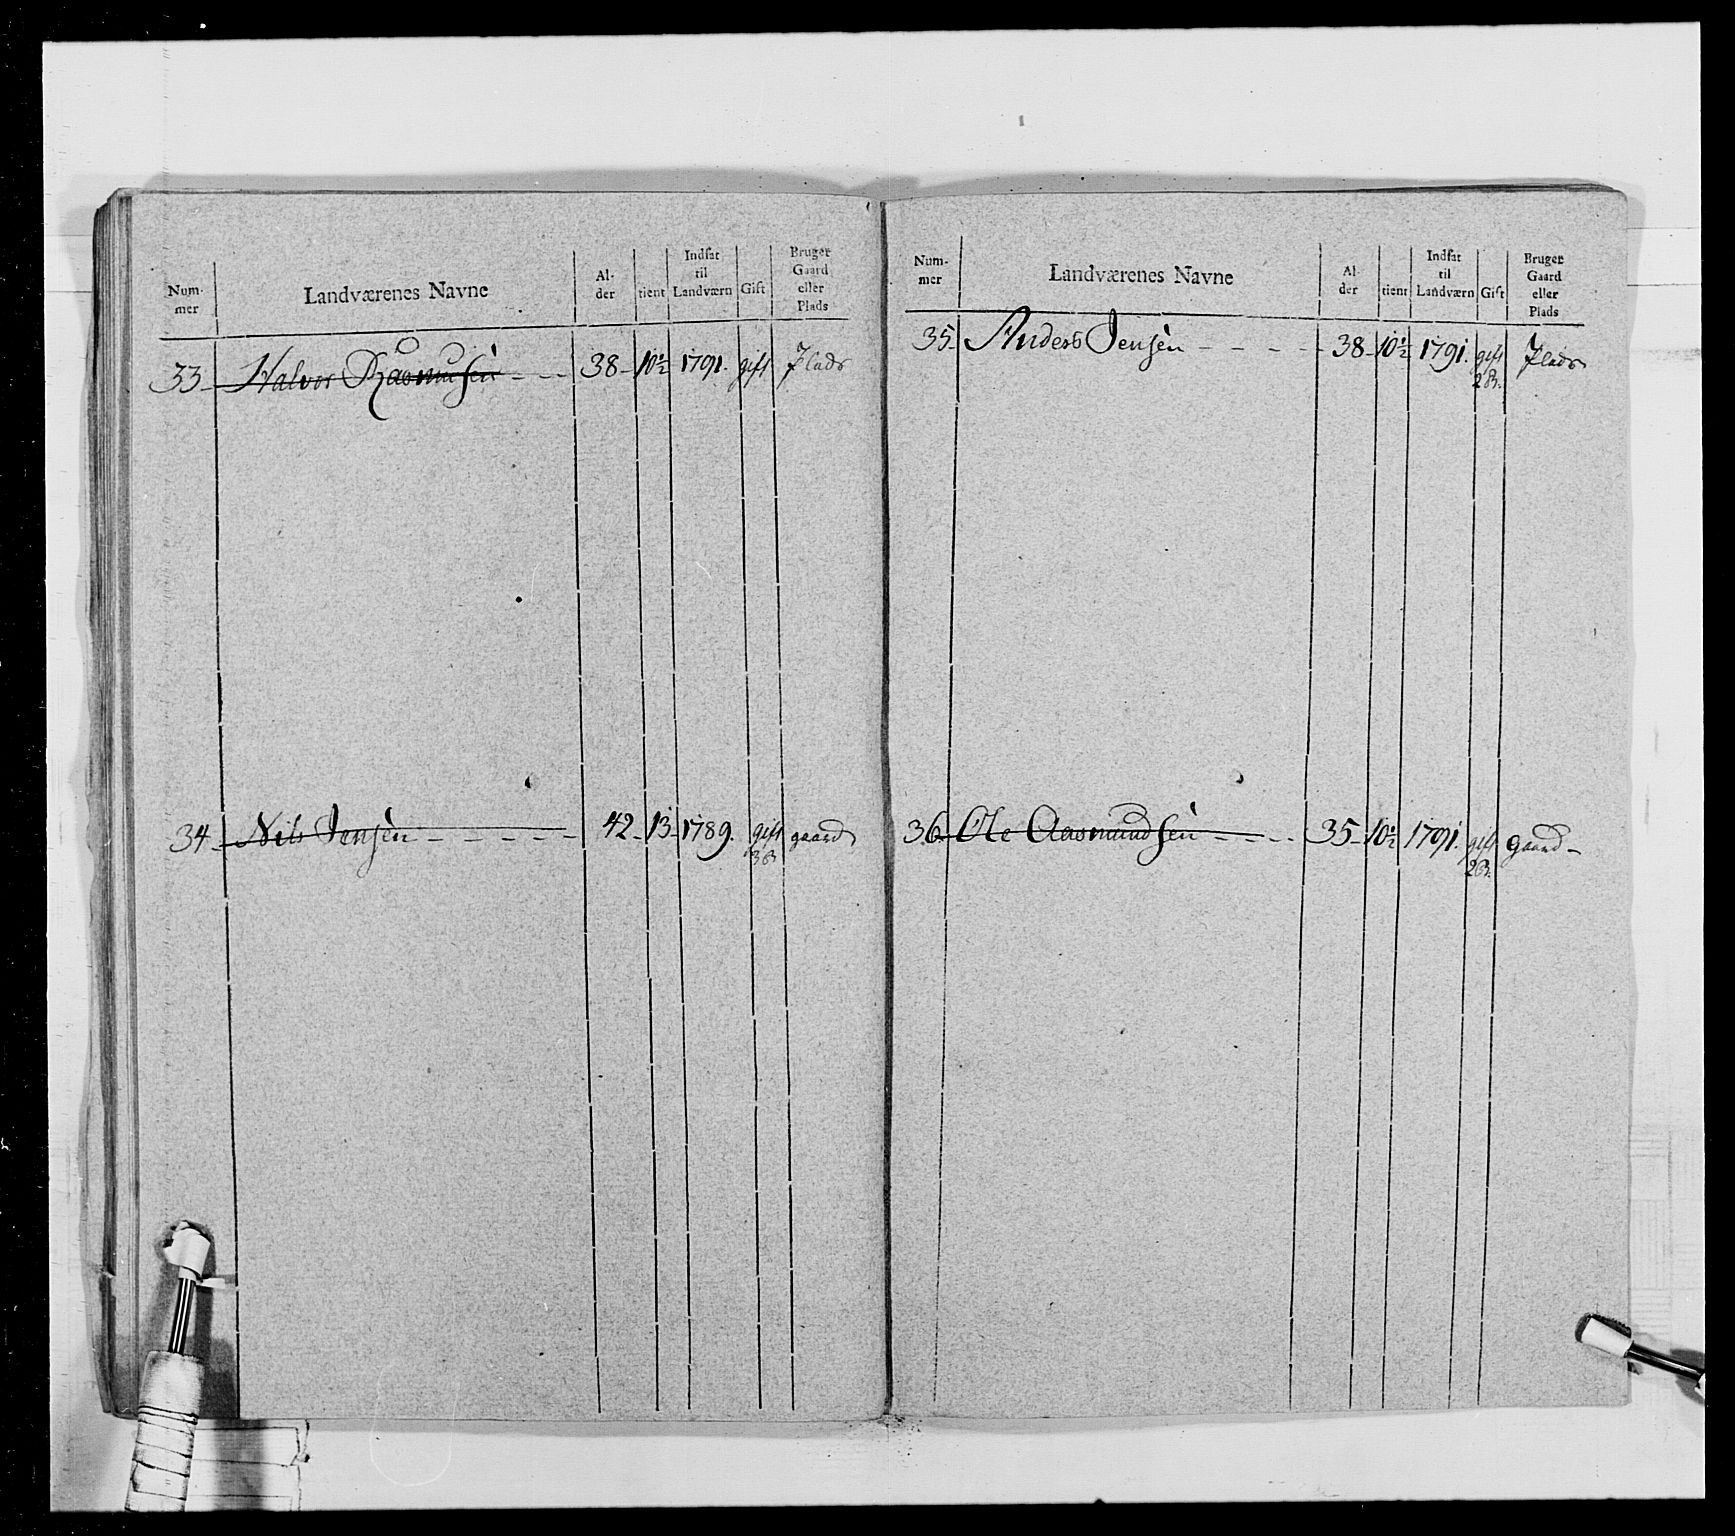 Num-
mer
Landværenes Navne
Al-
der
tient
Indsat
til
Landværn
Gift
Bruger
Gaard
eller
Plads
33 Halvor Rasmusen 38 10½ 1791. gift Plads
34 Nils Jensen 42 13 1789. gift gaard
3 B
Num-
mer
Landværenes Navne
Al
der
tient
Indsat
til
Landværn
Gift
Bruger
Gaard
eller
Plads
35 Anders Jensen 38 10½ 1791. gift Plads
2 B.
36. Ole Aasmundsen 35 10½ 1791. gift gaard
2 B.